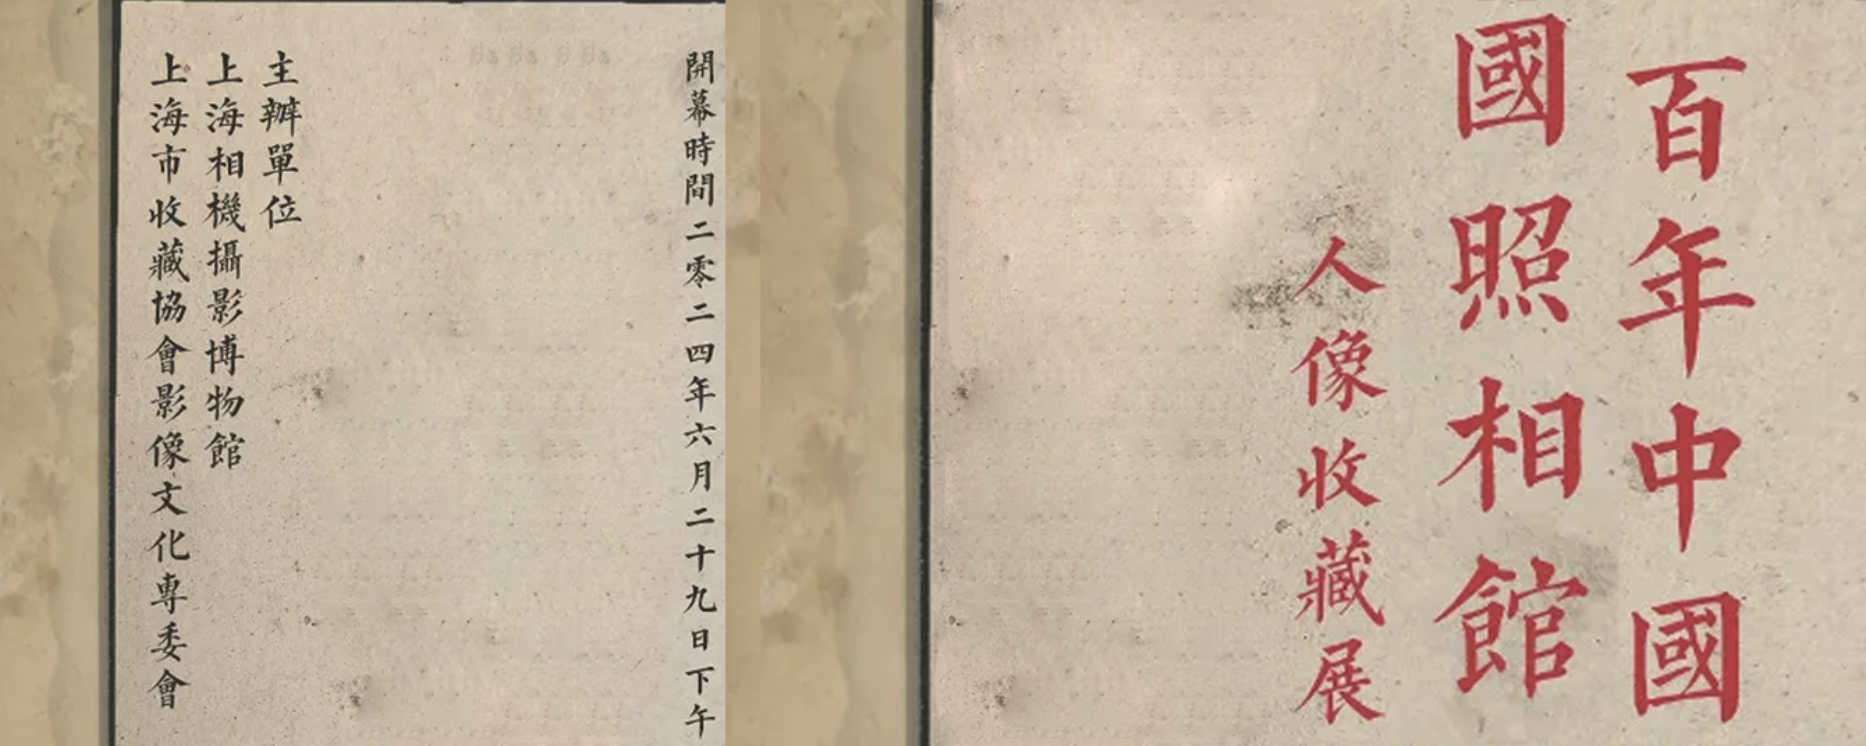 百年中國
國照相館
人像收藏展
開幕時間二零二四年六月二十九日下午
主辦單位
上海相機攝影博物館
上海市收藏協會影像文化專委會